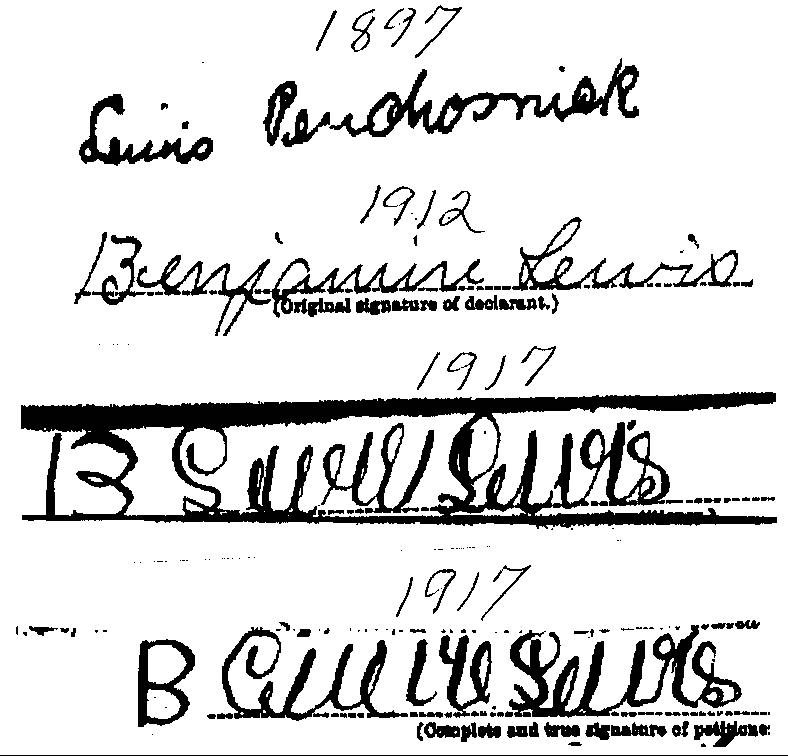 1897
Lewis Penchosniek
1912
Benjamine Lewis
(Original signature of declarant.)
1917
B Lewis
1917
B Lewis
(Complete and true signature of petitione